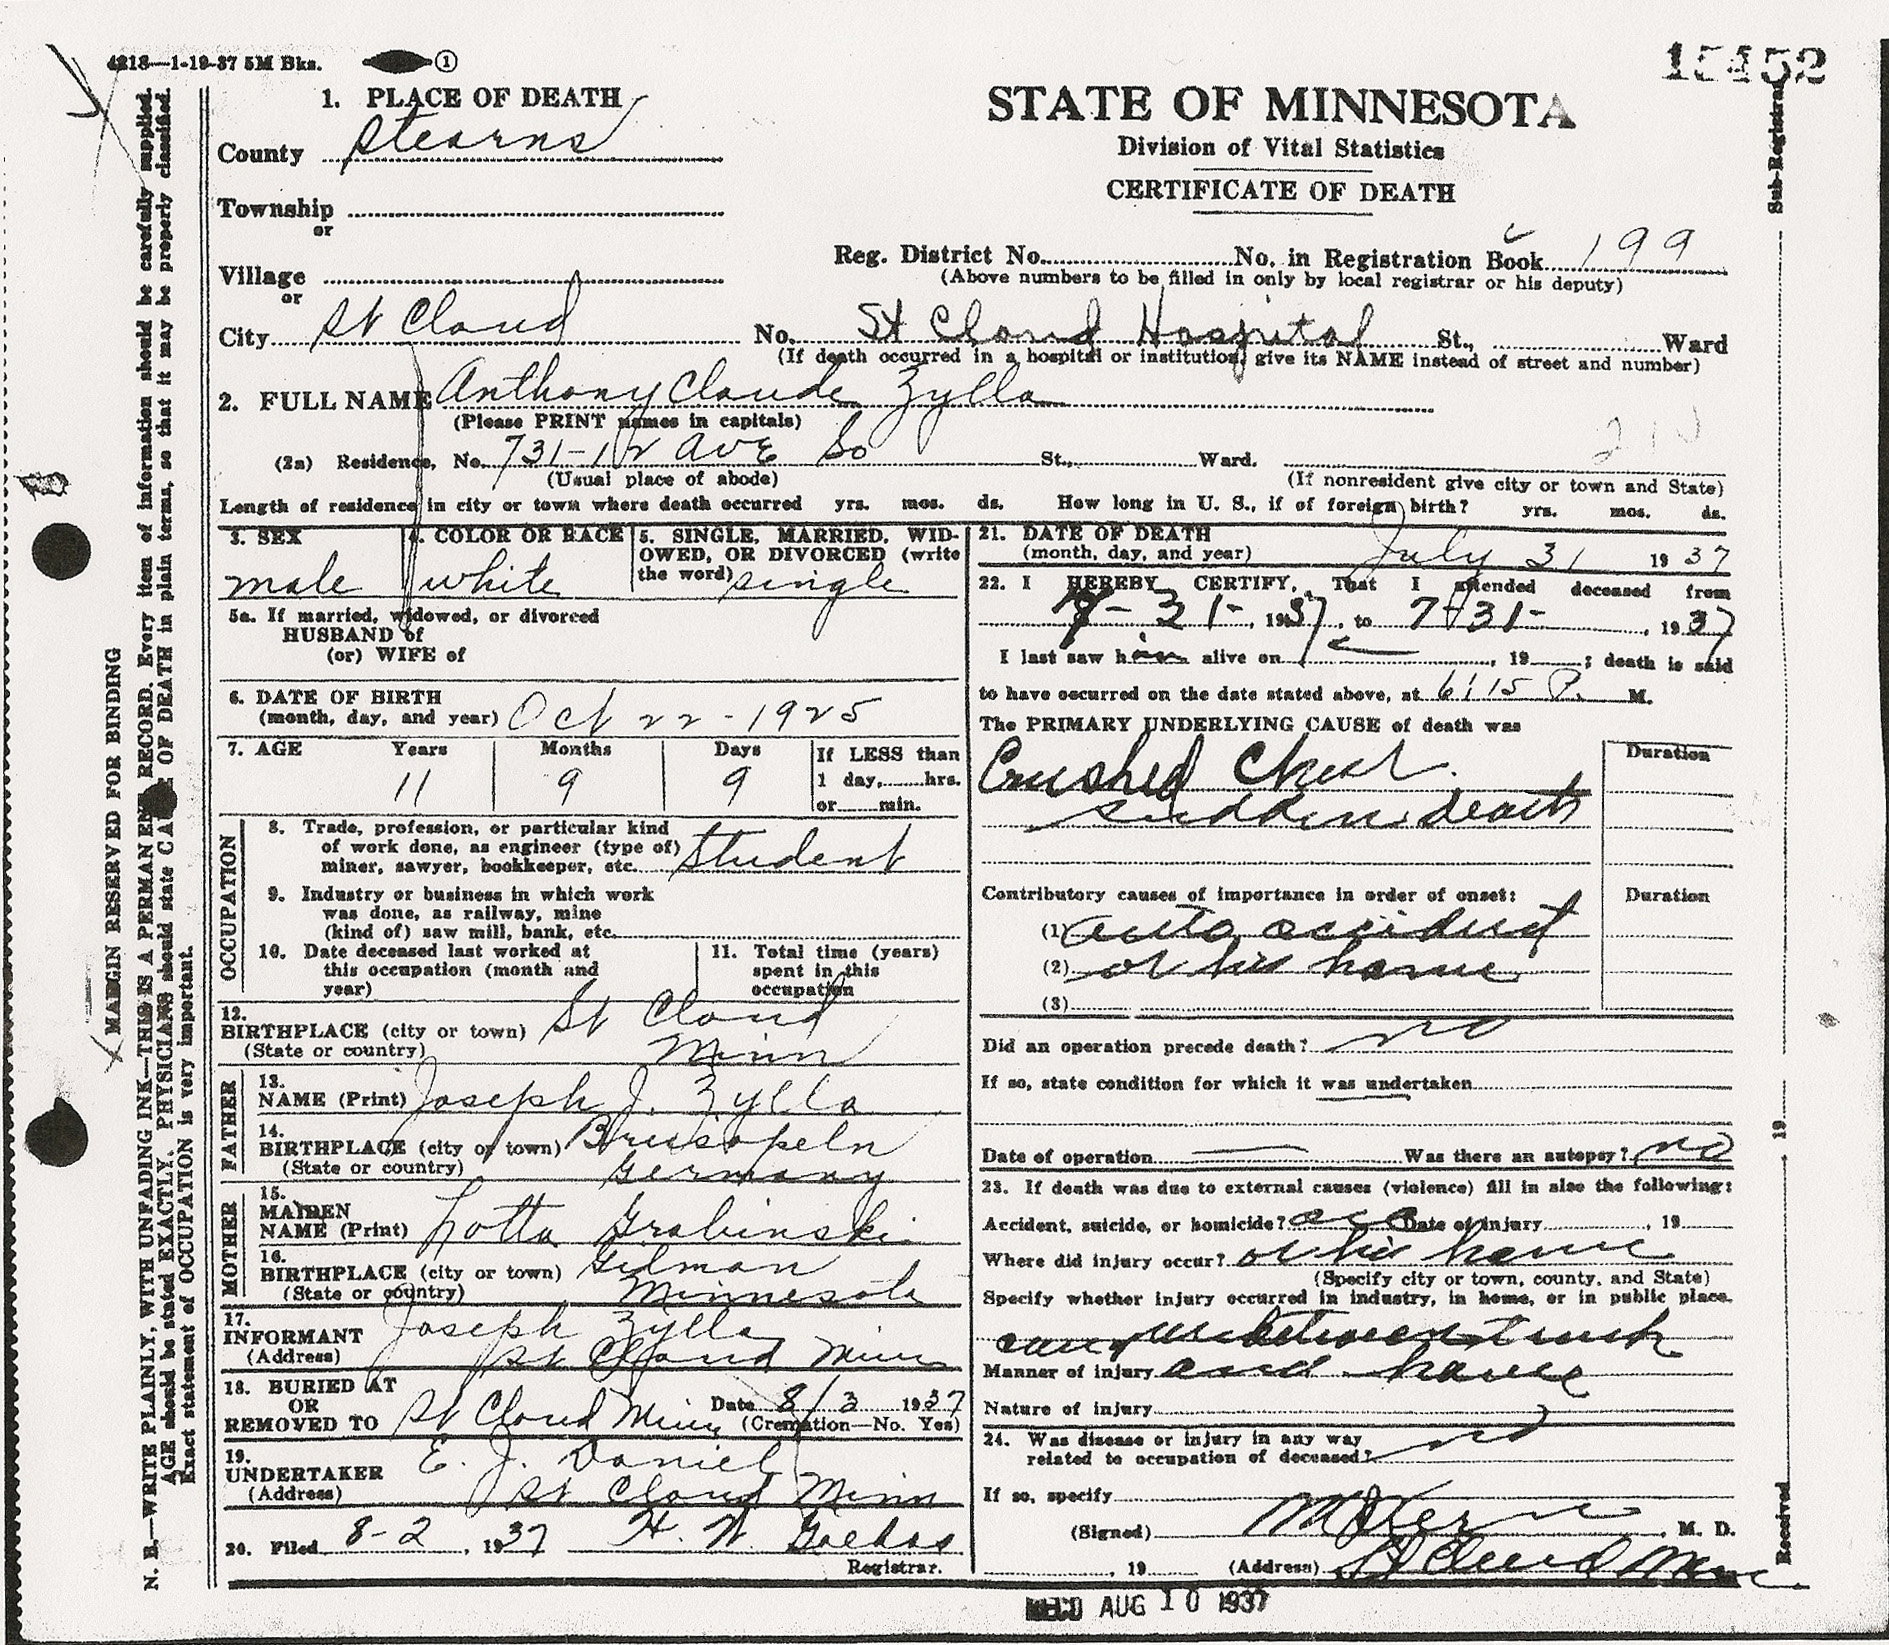 4218—1-19-37 5M Bks. 1
15452
1. PLACE OF DEATH
County Stearns
Township
or
Village
or
City St Cloud
STATE OF MINNESOTA
Division of Vital Statistics
CERTIFICATE OF DEATH
Reg. District No. No. in Registration Book 199
(Above numbers to be filled in only by local registrar or his deputy)
No. St Cloud Hospital St., Ward
(If death occurred in a hospital or institution, give its NAME instead of street and number)
2. FULL NAME Anthony Claude Zylla
(Please PRINT names in capitals)
(2a) Residence, No. 731-12 Ave So St., Ward.
(Usual place of abode) (If nonresident give city or town and State)
Length of residence in city or town where death occurred yrs. mos. ds. How long in U. S., if of foreign birth? yrs. mos. ds.
3. SEX
male
4. COLOR OR RACE
white
5. SINGLE, MARRIED, WID-
OWED, OR DIVORCED (write
the word) single
5a. If married, widowed, or divorced
HUSBAND of
(or) WIFE of
6. DATE OF BIRTH
(month, day, and year) Oct 22-1925
7. AGE Years Months Days
11 9 9
If LESS than
1 day,......hrs.
or......min.
OCCUPATION
8. Trade, profession, or particular kind
of work done, as engineer (type of)
miner, sawyer, bookkeeper, etc. Student
9. Industry or business in which work
was done, as railway, mine
(kind of) saw mill, bank, etc.
10. Date deceased last worked at
this occupation (month and
year)
11. Total time (years)
spent in this
occupation
12.
BIRTHPLACE (city or town) St Cloud
(State or country) Minn
FATHER
13.
NAME (Print) Joseph J. Zylla
14.
BIRTHPLACE (city or town)
(State or country) Germany
MOTHER
15.
MAIDEN
NAME (Print) Lotta Grabinski
16.
BIRTHPLACE (city or town) Gilman
(State or country) Minnesota
17.
INFORMANT Joseph Zylla
(Address) St Cloud Minn
18. BURIED AT
OR
REMOVED TO St Cloud Minn
Date 8/3 1937
(Cremation—No. Yes)
19.
UNDERTAKER E. J. Daniel
(Address) St Cloud Minn
20. Filed 8-2, 1937 H. W. Goehrs
Registrar.
21. DATE OF DEATH
(month, day, and year) July 31 1937
22. I HEREBY CERTIFY, That I attended deceased from
7-31-, 1937, to 7-31-, 1937
I last saw him alive on , 19 ; death is said
to have occurred on the date stated above, at 6:15 P. M.
The PRIMARY UNDERLYING CAUSE of death was
Duration
Crushed Chest.
sudden death
Contributory causes of importance in order of onset:
Duration
(1) auto accident
(2) at his home
(3)
Did an operation precede death? no
If so, state condition for which it was undertaken
Date of operation — Was there an autopsy? no
23. If death was due to external causes (violence) fill in also the following:
Accident, suicide, or homicide? acc Date of injury , 19
Where did injury occur? at his home
(Specify city or town, county, and State)
Specify whether injury occurred in industry, in home, or in public place.
caught between truck
Manner of injury and house
Nature of injury
24. Was disease or injury in any way
related to occupation of deceased? no
If so, specify
(Signed) Kern, M. D.
, 19 (Address) St Cloud Minn
REC'D AUG 10 1937
MARGIN RESERVED FOR BINDING
N. B.—WRITE PLAINLY, WITH UNFADING INK—THIS IS A PERMANENT RECORD. Every item of information should be carefully supplied.
AGE should be stated EXACTLY. PHYSICIANS should state CAUSE OF DEATH in plain terms, so that it may be properly classified.
Exact statement of OCCUPATION is very important.
Sub-Registrar
19
Received